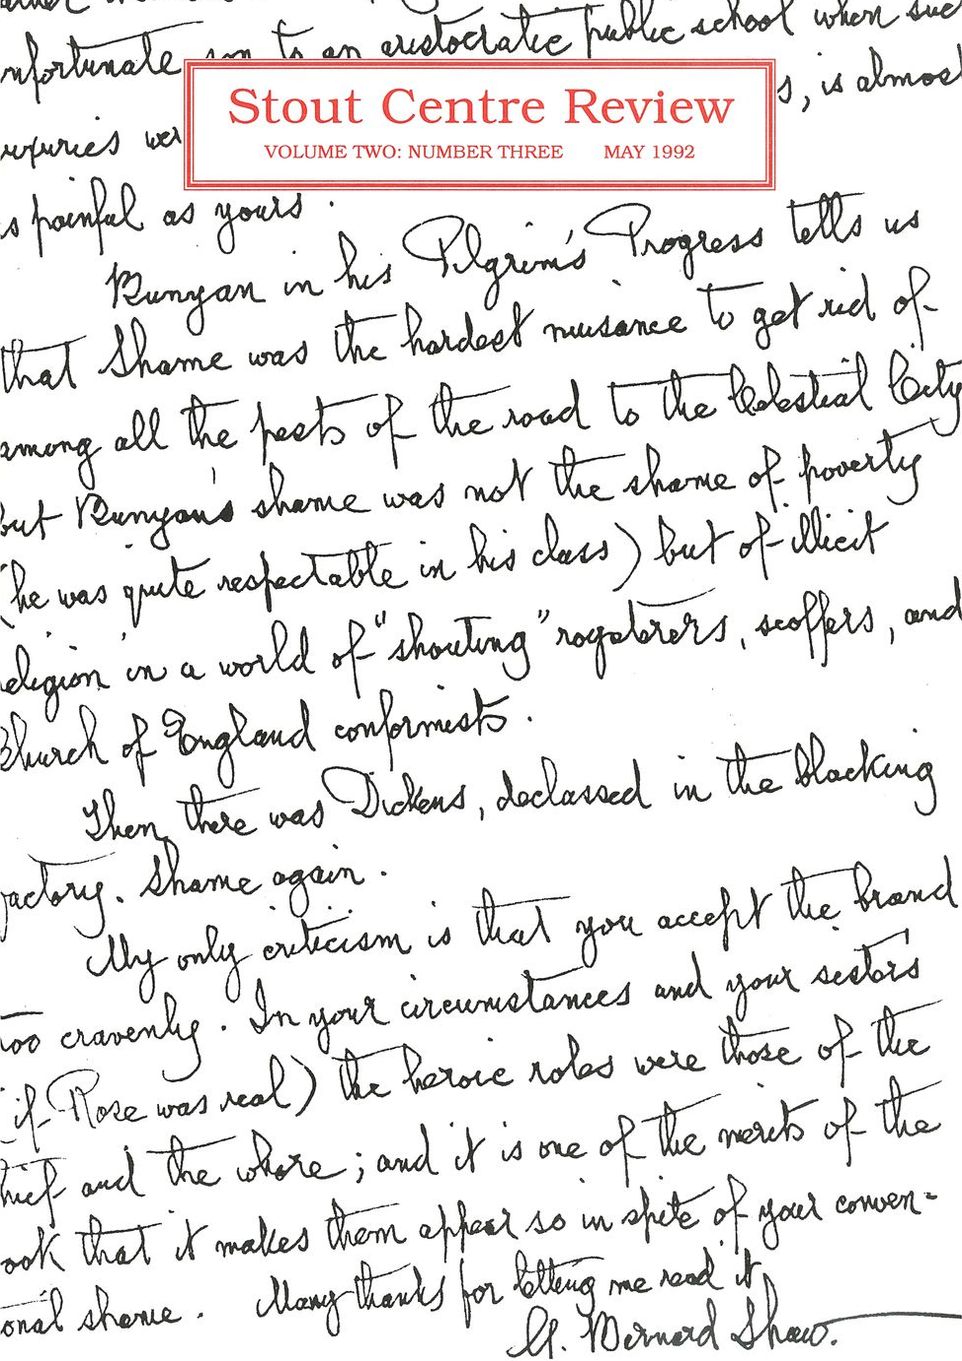 nfortunate son to an aristocratic public school when suc
Stout Centre Review
VOLUME TWO: NUMBER THREE MAY 1992
s, is almost
uxuries wer
s painful as yours.
Bunyan in his Pilgrim's Progress tells us
that Shame was the hardest nuisance to get rid of
among all the pests of the road to the Celestial City
but Bunyan's shame was not the shame of poverty
(he was quite respectable in his class) but of illicit
eligion in a world of "shouting" roysterers, scoffers, and
Church of England conformists.
Then there was Dickens, declassed in the blacking
factory. Shame again.
My only criticism is that you accept the brand
too cravenly. In your circumstances and your sisters
(if Rose was real) the heroic roles were those of the
hief and the whore; and it is one of the merits of the
ook that it makes them appear so in spite of your conven=
onal shame. Many thanks for letting me read it
G. Bernard Shaw.